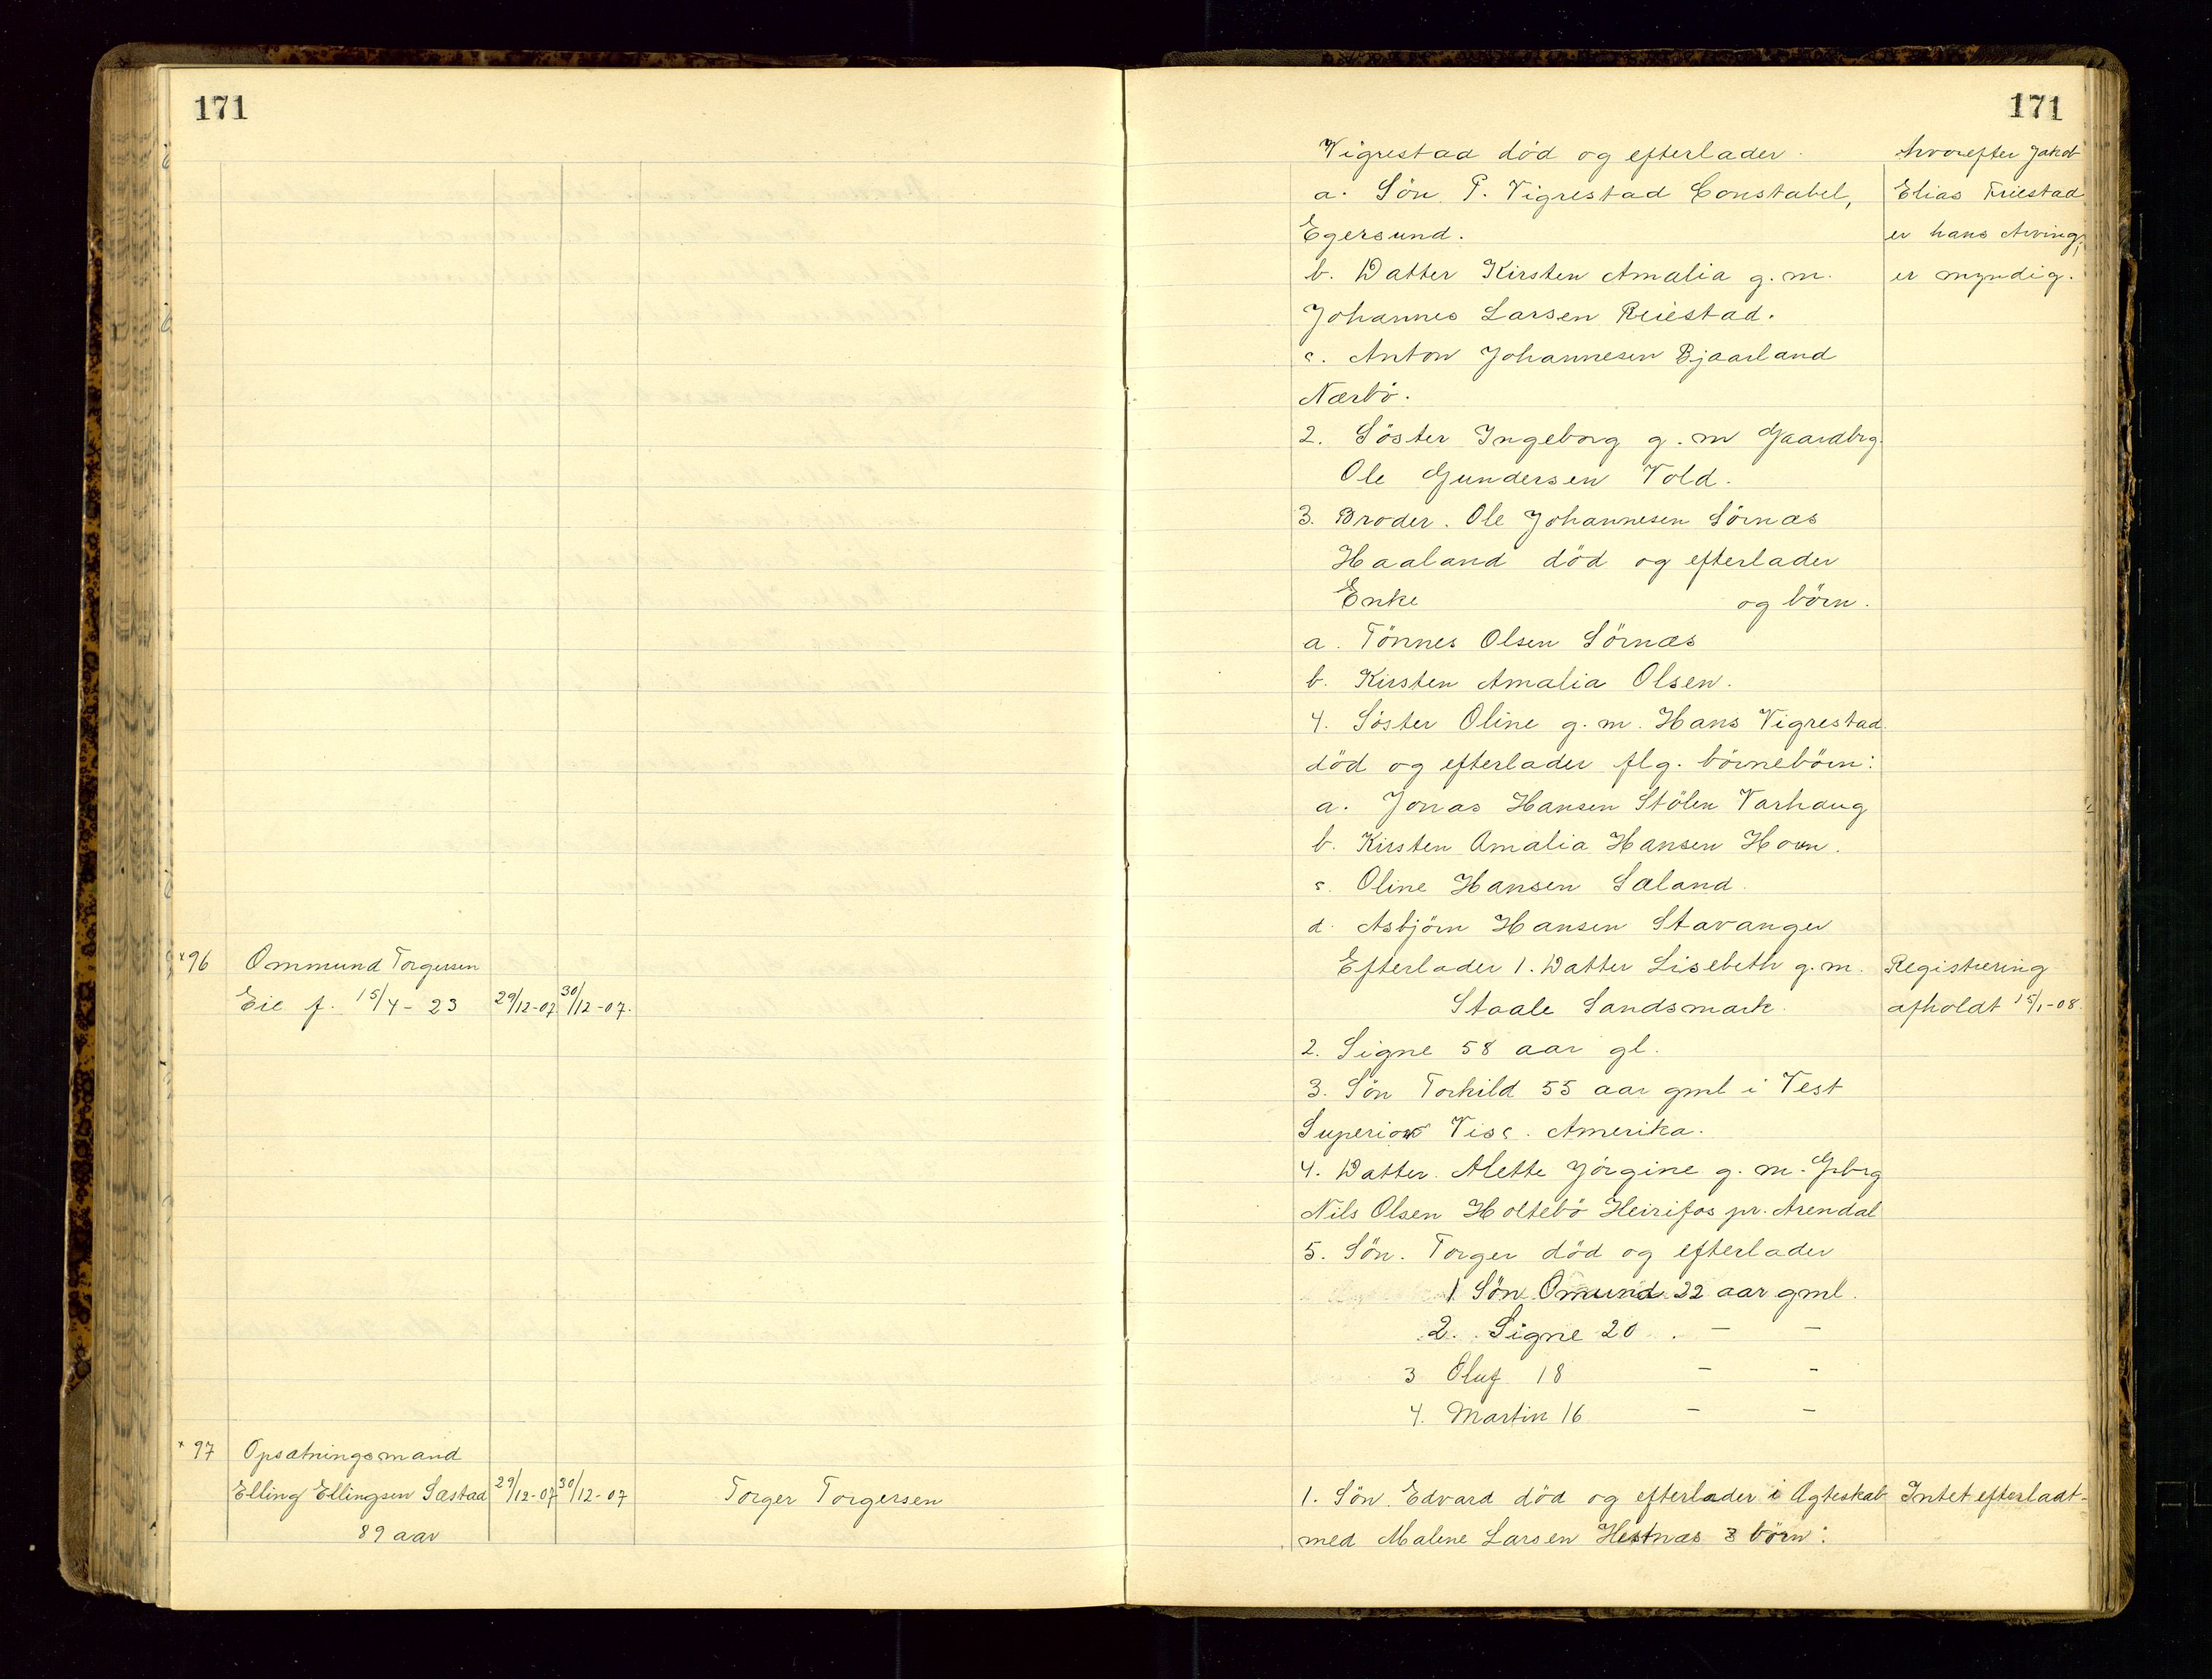 171
*96 Ommund Torgersen
Eie f. 15/4-23 29/12-07 30/12-07.
*97 Opsætningsmand
Elling Ellingsen Sæstad 29/12-07 30/12-07 Torger Torgersen
89 aar
171
Vigrestad död og efterlader. hvorefter Jakob
a. Sön P. Vigrestad Constabel, Elias Friestad
Egersund. er hans Arving,
b. Datter Kirsten Amalia g. m. er myndig.
Johannes Larsen Reiestad.
c. Anton Johannesen Bjaarland
Nærbö.
2. Söster Ingeborg g. m Gaardbrg.
Ole Gundersen Vold.
3. Broder. Ole Johannesen Sörnæs
Haaland död og efterlader
Enke og börn.
a. Tönnes Olsen Sörnæs
b. Kirsten Amalia Olsen.
4. Söster Oline g. m. Hans Vigrestad
död og efterlader flg. börnebörn:
a. Jonas Hansen Stölen Varhaug
b. Kirsten Amalia Hansen
c. Oline Hansen Sæland.
d. Asbjörn Hansen Stavanger
Efterlader 1. Datter Lisebeth g. m. Registrering
Staale Sandsmark. afholdt 15/1-08.
2. Signe 58 aar gl.
3. Sön Torkild 55 aar gml i Vest
Superior Visc. Amerika.
4. Datter. Mette Jörgine g. m. Gbrg
Nils Olsen Holtebö Heirifos pr. Arendal
5. Sön. Torger död og efterlader
1 Sön Omund 22 aar gml.
2. Signe 20 . — —
3 Oluf 18 — —
4. Martin 16 — —
1. Sön. Edvard död og efterlader i Ægteskab Intet efterladt-
med Malene Larsen Hestnæs 3 börn: